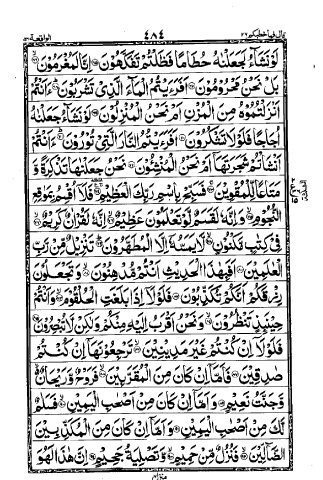 قال فما خطبكم ٢٧ ٤٨٤ الواقعة ٥٦
لَوْ نَشَآءُ لَجَعَلْنٰهُ حُطَامًا فَظَلْتُمْ تَفَكَّهُوْنَ اِنَّا لَمُغْرَمُوْنَ
بَلْ نَحْنُ مَحْرُوْمُوْنَ اَفَرَءَيْتُمُ الْمَآءَ الَّذِيْ تَشْرَبُوْنَ ءَاَنْتُمْ
اَنْزَلْتُمُوْهُ مِنَ الْمُزْنِ اَمْ نَحْنُ الْمُنْزِلُوْنَ لَوْ نَشَآءُ جَعَلْنٰهُ
اُجَاجًا فَلَوْلَا تَشْكُرُوْنَ اَفَرَءَيْتُمُ النَّارَ الَّتِيْ تُوْرُوْنَ ءَاَنْتُمْ
اَنْشَاْتُمْ شَجَرَتَهَآ اَمْ نَحْنُ الْمُنْشِئُوْنَ نَحْنُ جَعَلْنٰهَا تَذْكِرَةً وَّ
مَتَاعًا لِّلْمُقْوِيْنَ فَسَبِّحْ بِاسْمِ رَبِّكَ الْعَظِيْمِ فَلَآ اُقْسِمُ بِمَوٰقِعِ
النُّجُوْمِ وَاِنَّهٗ لَقَسَمٌ لَّوْ تَعْلَمُوْنَ عَظِيْمٌ اِنَّهٗ لَقُرْاٰنٌ كَرِيْمٌ
فِيْ كِتٰبٍ مَّكْنُوْنٍ لَّا يَمَسُّهٗٓ اِلَّا الْمُطَهَّرُوْنَ تَنْزِيْلٌ مِّنْ رَّبِّ
الْعٰلَمِيْنَ اَفَبِهٰذَا الْحَدِيْثِ اَنْتُمْ مُّدْهِنُوْنَ وَتَجْعَلُوْنَ
رِزْقَكُمْ اَنَّكُمْ تُكَذِّبُوْنَ فَلَوْلَآ اِذَا بَلَغَتِ الْحُلْقُوْمَ وَاَنْتُمْ
حِيْنَئِذٍ تَنْظُرُوْنَ وَنَحْنُ اَقْرَبُ اِلَيْهِ مِنْكُمْ وَلٰكِنْ لَّا تُبْصِرُوْنَ
فَلَوْلَآ اِنْ كُنْتُمْ غَيْرَ مَدِيْنِيْنَ تَرْجِعُوْنَهَآ اِنْ كُنْتُمْ
صٰدِقِيْنَ فَاَمَّآ اِنْ كَانَ مِنَ الْمُقَرَّبِيْنَ فَرَوْحٌ وَّرَيْحَانٌ
وَّجَنَّتُ نَعِيْمٍ وَاَمَّآ اِنْ كَانَ مِنْ اَصْحٰبِ الْيَمِيْنِ فَسَلٰمٌ
لَّكَ مِنْ اَصْحٰبِ الْيَمِيْنِ وَاَمَّآ اِنْ كَانَ مِنَ الْمُكَذِّبِيْنَ
الضَّآلِّيْنَ فَنُزُلٌ مِّنْ حَمِيْمٍ وَّتَصْلِيَةُ جَحِيْمٍ اِنَّ هٰذَا لَهُوَ